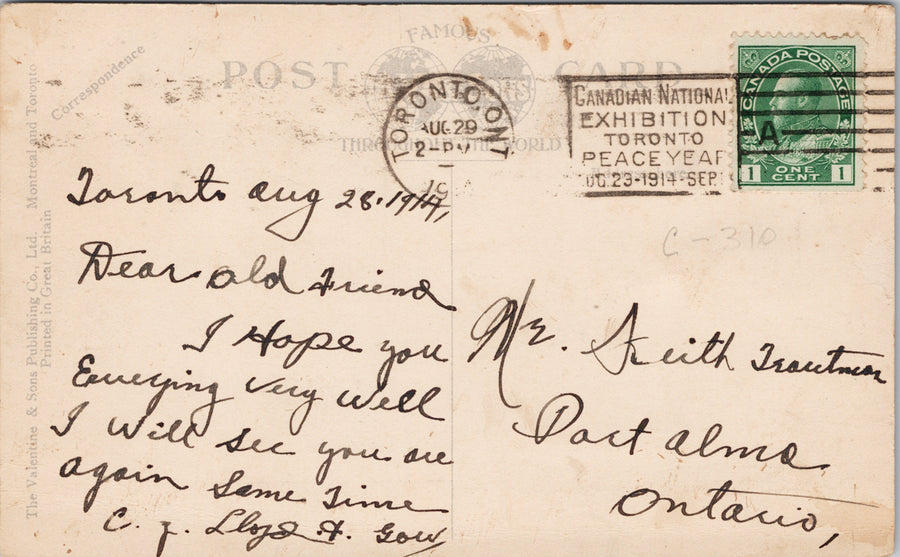 FAMOUS
POST CARD
THROUGHOUT THE WORLD
Correspondence
The Valentine & Sons Publishing Co., Ltd. Montreal and Toronto
Printed in Great Britain
TORONTO, ONT
AUG 29
2-PM
19
CANADIAN NATIONAL
EXHIBITION
TORONTO
PEACE YEAR
UG.29-1914-SEP.
CANADA POSTAGE
A
1 ONE CENT 1
C-310
Toronto Aug 28.1914,
Dear old Friend
I Hope you
Envying Very Well
I Will see you are
again Some Time
C. Lloyd H. Gow
Mr. Keith Troutman
Port Alma
Ontario,